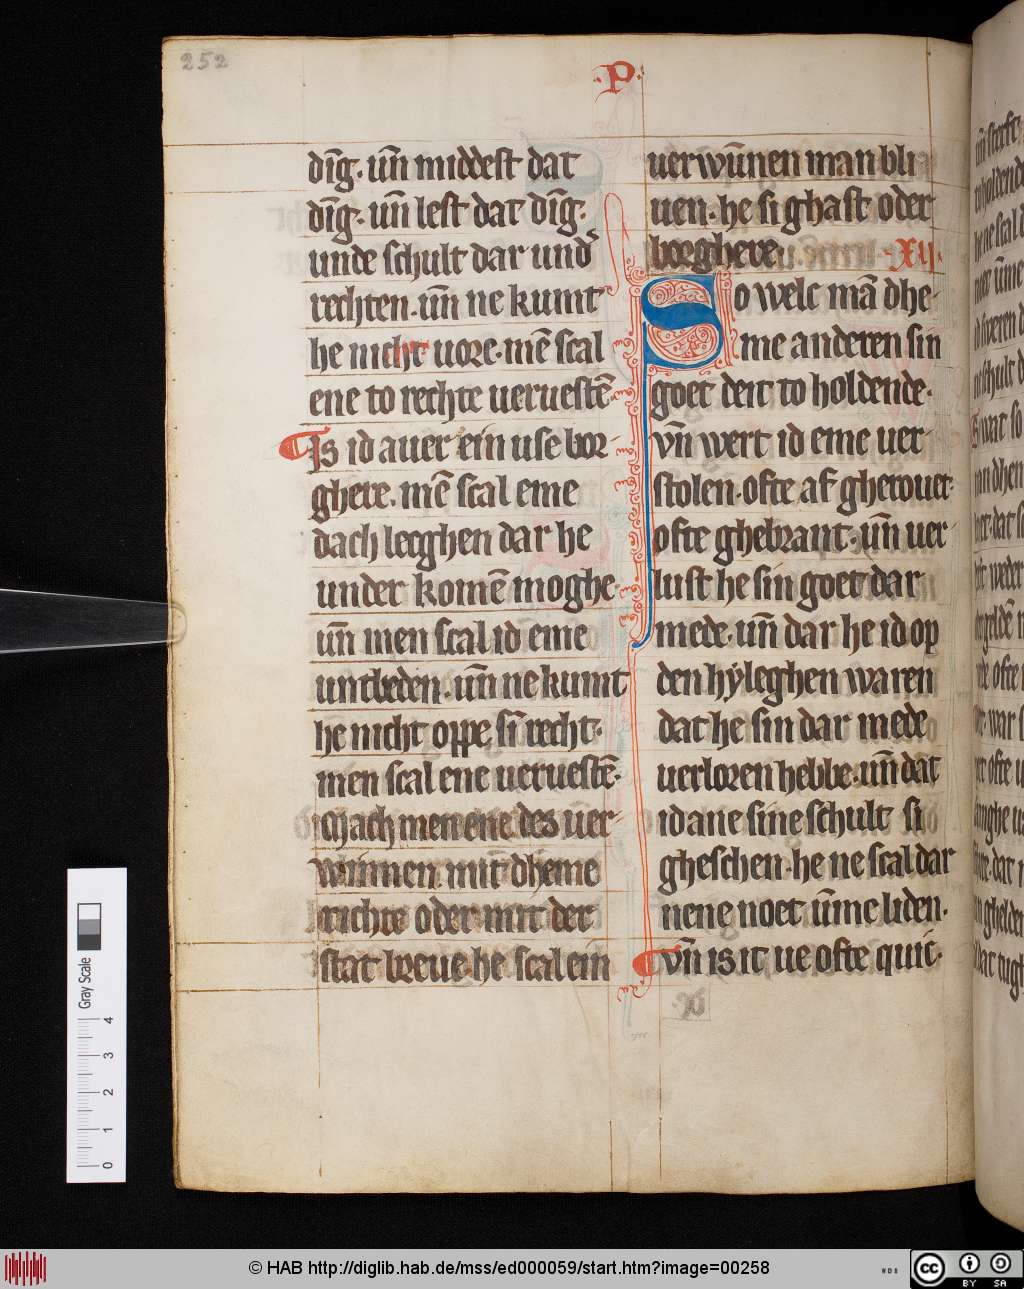 252
.P.
dīg. un̄ middest dat
dīg. un̄ lest dat dīg.
unde schult dar und᷎
rechten. un̄ ne kumt
he nicht uore. mē scal
ene to rechte ueruestē.
Is id auer ein use bor-
ghere. mē scal eme
dach lecghen dar he
under komē moghe.
un̄ men scal id eme
untbeden. un̄ ne kumt
he nicht oppe sī recht.
men scal ene ueruestē.
Mach men ene des uer-
winnen mit dheme
richte oder mit der
stat breue. he scal ein
uerwūnen man bli
uen. he si ghast oder
borghere. XIJ.
So welc mā dhe-
me anderen sin
goet deit to holdende.
vn̄ wert id eme uer-
stolen. ofte af gherouet.
ofte ghebrant. un̄ uer-
lust he sin goet dar
mede. un̄ dar he id op
den hÿleghen waren
dat he sin dar mede
uerloren hebbe. un̄ dat
id ane sine schult si
gheschen. he ne scal dar
nene noet ūme liden.
vn̄ is it ue ofte quic.
Gray Scale
4
3
2
1
0
© HAB http://diglib.hab.de/mss/ed000059/start.htm?image=00258
WDB
CC BY SA